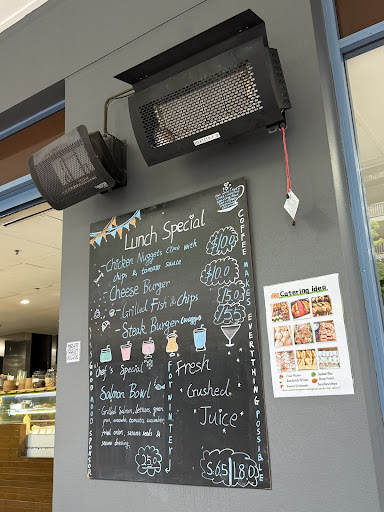 Lunch Special
Chicken Nuggets come with
chips & tomato sauce
$10.0
Cheese Burger
$10.0
Grilled Fish & Chips
15.0
Steak Burger (wagyu)
15.5
COFFEE MAKES EVERYTHING POSSIBLE
GOOD MOOD SPONSOR
Chef's Special
Salmon Bowl
Grilled Salmon, lettuce, green
peas, avocado, tomato, cucumber,
fried onion, sesame seeds &
sesame dressing.
25.0
Fresh
Gushed
Juice
S 6.5 L 8.0
Catering idea